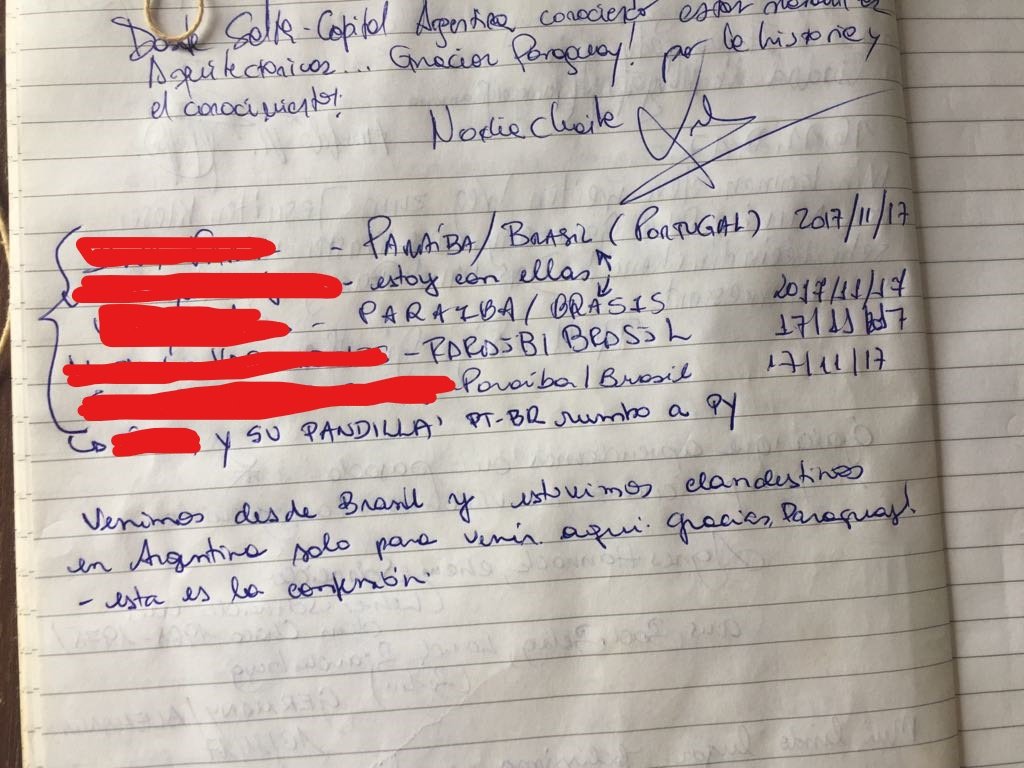 Desde Salta-Capital Argentina conociendo estos
Arquitectonicos... Gracias Paraguay! por la historia y
el conocimiento!
- PARAÍBA/BRASIL (PORTUGAL) 2017/11/17
- estoy con ellas
- PARAIBA/BRASIS 2017/11/17
BRASIL 17/11/
Paraíba/Brasil 17/11/17
y SU PANDILLA PT-BR rumbo a PY
Venimos desde Brasil y estuvimos clandestinos
en Argentina solo para venir aqui. Gracias, Paraguay!
- esta es la confesión.